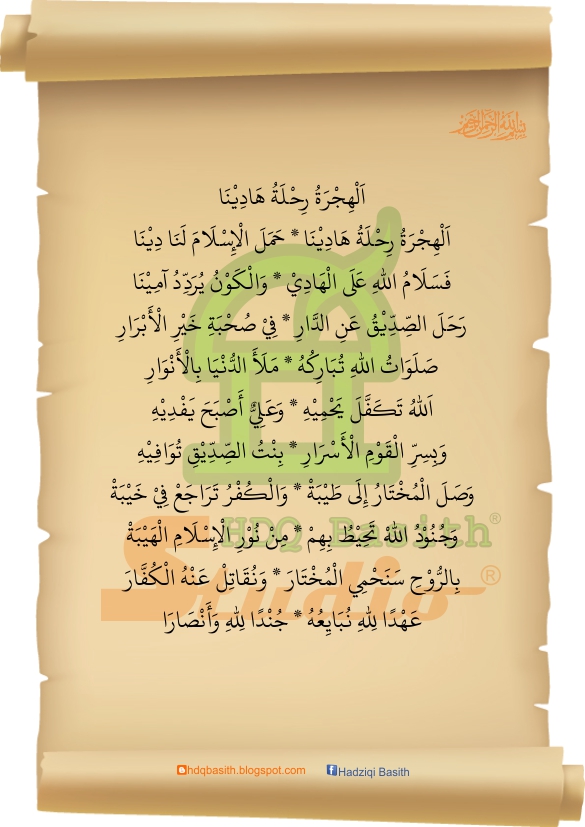 بسم الله الرحمن الرحيم
اَلْهِجْرَةُ رِحْلَةُ هَادِيْنَا
اَلْهِجْرَةُ رِحْلَةُ هَادِيْنَا * حَمَلَ الْإِسْلَامَ لَنَا دِيْنَا
فَسَلَامُ اللهِ عَلَى الْهَادِيْ * وَالْكَوْنُ يُرَدِّدُ آمِيْنَا
رَحَلَ الصِّدِّيْقُ عَنِ الدَّارِ * فِيْ صُحْبَةِ خَيْرِ الْأَبْرَارِ
صَلَوَاتُ اللهِ تُبَارِكُهُ * مَلَأَ الدُّنْيَا بِالْأَنْوَارِ
اَللهُ تَكَفَّلَ يَحْمِيْهِ * وَعَلِيٌّ أَصْبَحَ يَفْدِيْهِ
وَبِسِرِّ الْقَوْمِ الْأَسْرَارِ * بِنْتُ الصِّدِّيْقِ تُوَافِيْهِ
وَصَلَ الْمُخْتَارُ إِلَى طَيْبَةْ * وَالْكُفْرُ تَرَاجَعْ فِيْ خَيْبَةْ
وَجُنُوْدُ اللهْ تَحِيْطُ بِهِمْ * مِنْ نُوْرِ الْإِسْلَامِ الْهَيْبَةْ
HDQ Basith®
بِالرُّوْحِ سَنَحْمِي الْمُخْتَارَ * وَنُقَاتِلْ عَنْهُ الْكُفَّارَ
Studio®
عَهْدًا لِلهِ نُبَايِعُهُ * جُنْدًا لِلهِ وَأَنْصَارَا
hdqbasith.blogspot.com Hadziqi Basith